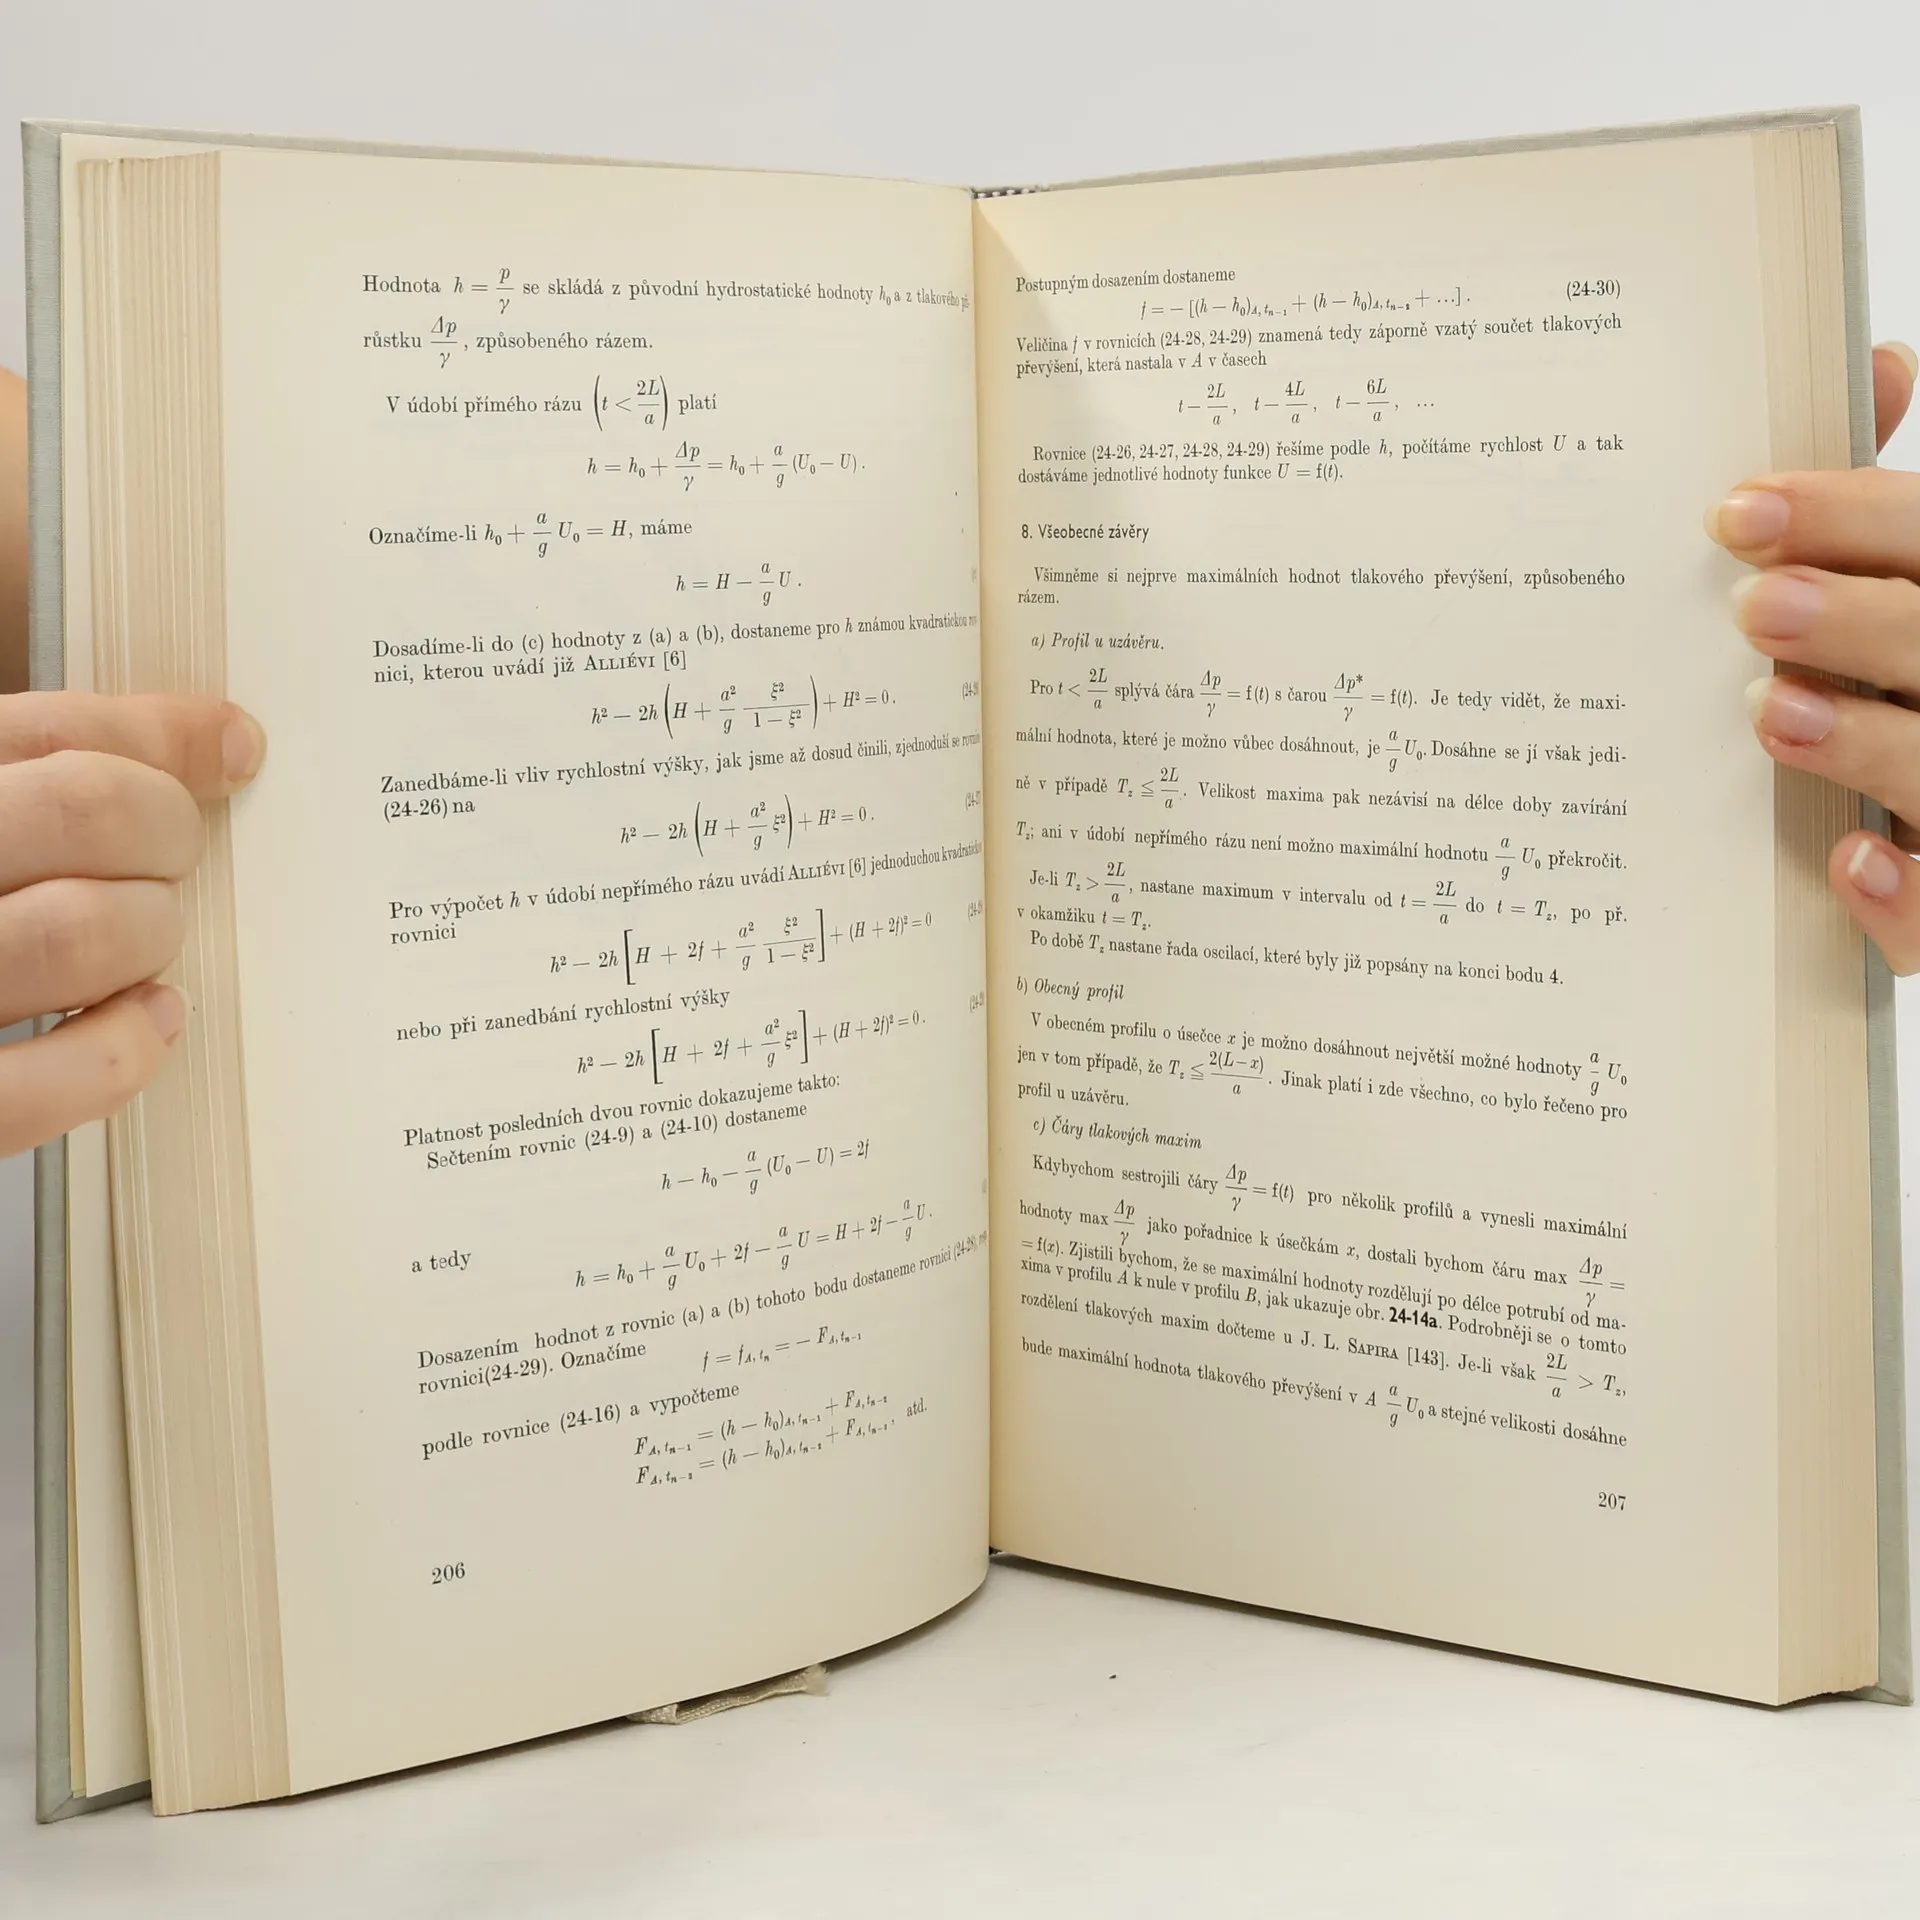 Hodnota h = p/γ se skládá z původní hydrostatické hodnoty h₀ a z tlakového
růstku Δp/γ, způsobeného rázem.
V údobí přímého rázu (t < 2L/a) platí
h = h₀ + Δp/γ = h₀ + a/g (U₀ − U).
Označíme-li h₀ + a/g U₀ = H, máme
h = H − a/g U.
Dosadíme-li do (c) hodnoty z (a) a (b), dostaneme pro h známou kvadratickou
nici, kterou uvádí již ALLIÉVI [6]
h² − 2h (H + a²/g ξ²/(1 − ξ²)) + H² = 0.
Zanedbáme-li vliv rychlostní výšky, jak jsme až dosud činili, zjednoduší se
(24-26) na
h² − 2h (H + a²/g ξ²) + H² = 0.
Pro výpočet h v údobí nepřímého rázu uvádí ALLIÉVI [6] jednoduchou
rovnici
h² − 2h [H + 2f + a²/g ξ²/(1 − ξ²)] + (H + 2f)² = 0
nebo při zanedbání rychlostní výšky
h² − 2h [H + 2f + a²/g ξ²] + (H + 2f)² = 0.
Platnost posledních dvou rovnic dokazujeme takto:
Sečtením rovnic (24-9) a (24-10) dostaneme
h − h₀ − a/g (U₀ − U) = 2f
a tedy
h = h₀ + a/g U₀ + 2f − a/g U = H + 2f − a/g U.
Dosazením hodnot z rovnic (a) a (b) tohoto bodu dostaneme rovnici (24-28),
rovnici(24-29). Označíme
f = f_A, tₙ = − F_A, tₙ₋₁
podle rovnice (24-16) a vypočteme
F_A, tₙ₋₁ = (h − h₀)_A, tₙ₋₁ + F_A, tₙ₋₂
F_A, tₙ₋₂ = (h − h₀)_A, tₙ₋₂ + , atd.
206
Postupným dosazením dostaneme
f = − [(h − h₀)_A, tₙ₋₁ + (h − h₀)_A, tₙ₋₂ + ...]. (24-30)
Veličina f v rovnicích (24-28, 24-29) znamená tedy záporně vzatý součet tlakových
převýšení, která nastala v A v časech
t − 2L/a, t − 4L/a, t − 6L/a, ...
Rovnice (24-26, 24-27, 24-28, 24-29) řešíme podle h, počítáme rychlost U a tak
dostáváme jednotlivé hodnoty funkce U = f(t).
8. Všeobecné závěry
Všimněme si nejprve maximálních hodnot tlakového převýšení, způsobeného
rázem.
a) Profil u uzávěru.
Pro t < 2L/a splývá čára Δp/γ = f(t) s čarou Δp*/γ = f(t). Je tedy vidět, že maxi-
mální hodnota, které je možno vůbec dosáhnout, je a/g U₀. Dosáhne se jí však jedi-
ně v případě T_z ≦ 2L/a. Velikost maxima pak nezávisí na délce doby zavírání
T_z; ani v údobí nepřímého rázu není možno maximální hodnotu a/g U₀ překročit.
Je-li T_z > 2L/a, nastane maximum v intervalu od t = 2L/a do t = T_z, po př.
v okamžiku t = T_z.
Po době T_z nastane řada oscilací, které byly již popsány na konci bodu 4.
b) Obecný profil
V obecném profilu o úsečce x je možno dosáhnout největší možné hodnoty a/g U₀
jen v tom případě, že T_z ≦ 2(L−x)/a. Jinak platí i zde všechno, co bylo řečeno pro
profil u uzávěru.
c) Čáry tlakových maxim
Kdybychom sestrojili čáry Δp/γ = f(t) pro několik profilů a vynesli maximální
hodnoty max Δp/γ jako pořadnice k úsečkám x, dostali bychom čáru max Δp/γ =
= f(x). Zjistili bychom, že se maximální hodnoty rozdělují po délce potrubí od ma-
xima v profilu A k nule v profilu B, jak ukazuje obr. 24-14a. Podrobněji se o tomto
rozdělení tlakových maxim dočteme u J. L. SAPIRA [143]. Je-li však 2L/a > T_z,
bude maximální hodnota tlakového převýšení v A a/g U₀ a stejné velikosti dosáhne
207